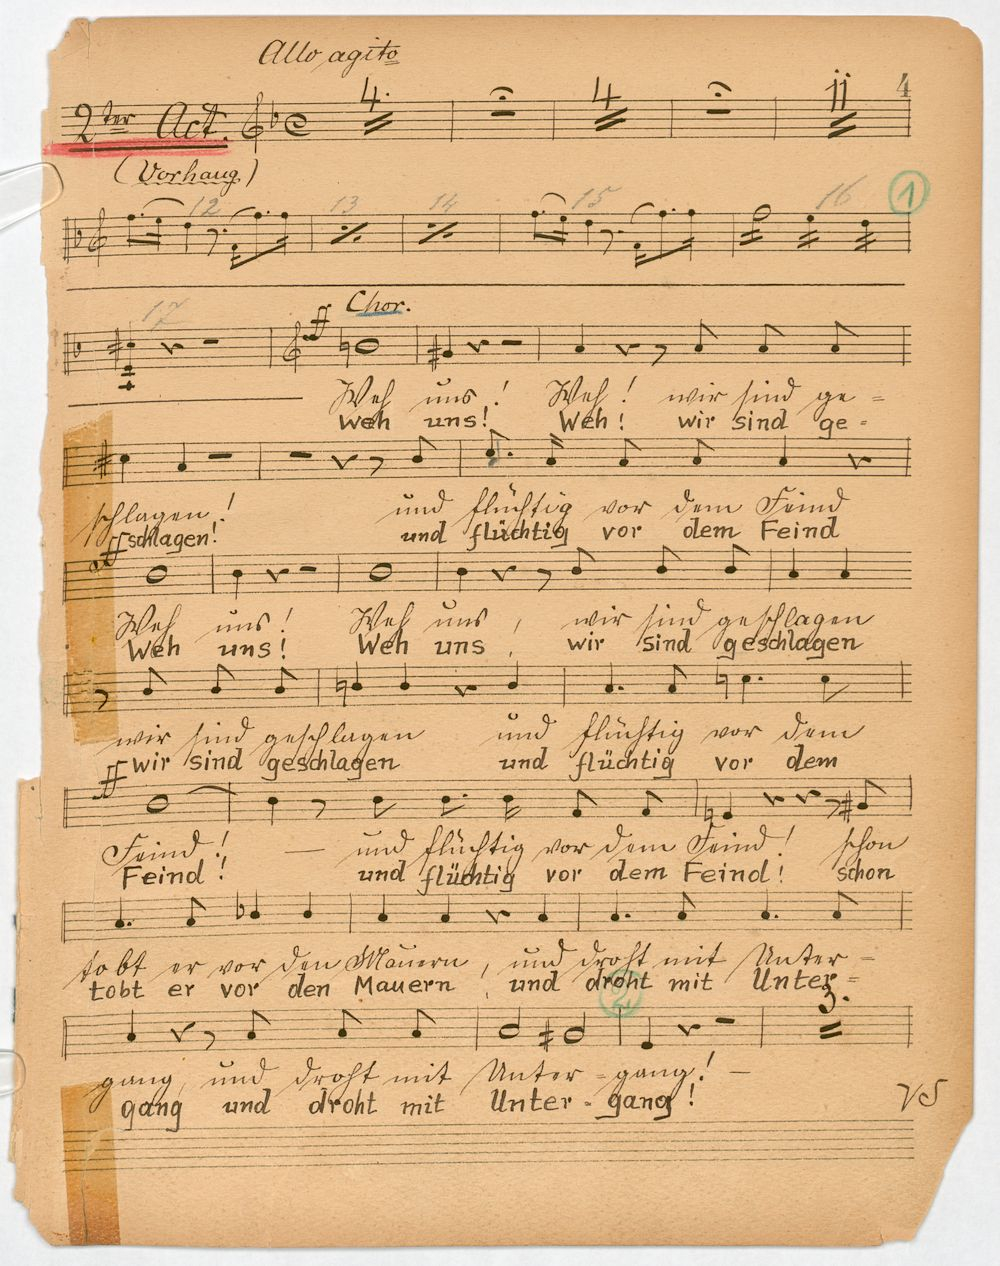 Allo agito
4. 4 11 4
2ter Act.
(Vorhang)
12 13 14 15 16 1
17 Chor.
ff
Weh uns! Weh! wir sind ge-
Weh uns! Weh! wir sind ge-
schlagen! und flüchtig vor dem Feind
schlagen! und flüchtig vor dem Feind
ff
Weh uns! Weh uns, wir sind geschlagen
Weh uns! Weh uns, wir sind geschlagen
wir sind geschlagen und flüchtig vor dem
wir sind geschlagen und flüchtig vor dem
ff
Feind! — und flüchtig vor dem Feind! schon
Feind! und flüchtig vor dem Feind! schon
tobt er vor den Mauern, und droht mit Unter-
tobt er vor den Mauern, und droht mit Unter-
2 3.
gang, und droht mit Unter-gang! —
gang und droht mit Unter-gang!
VS